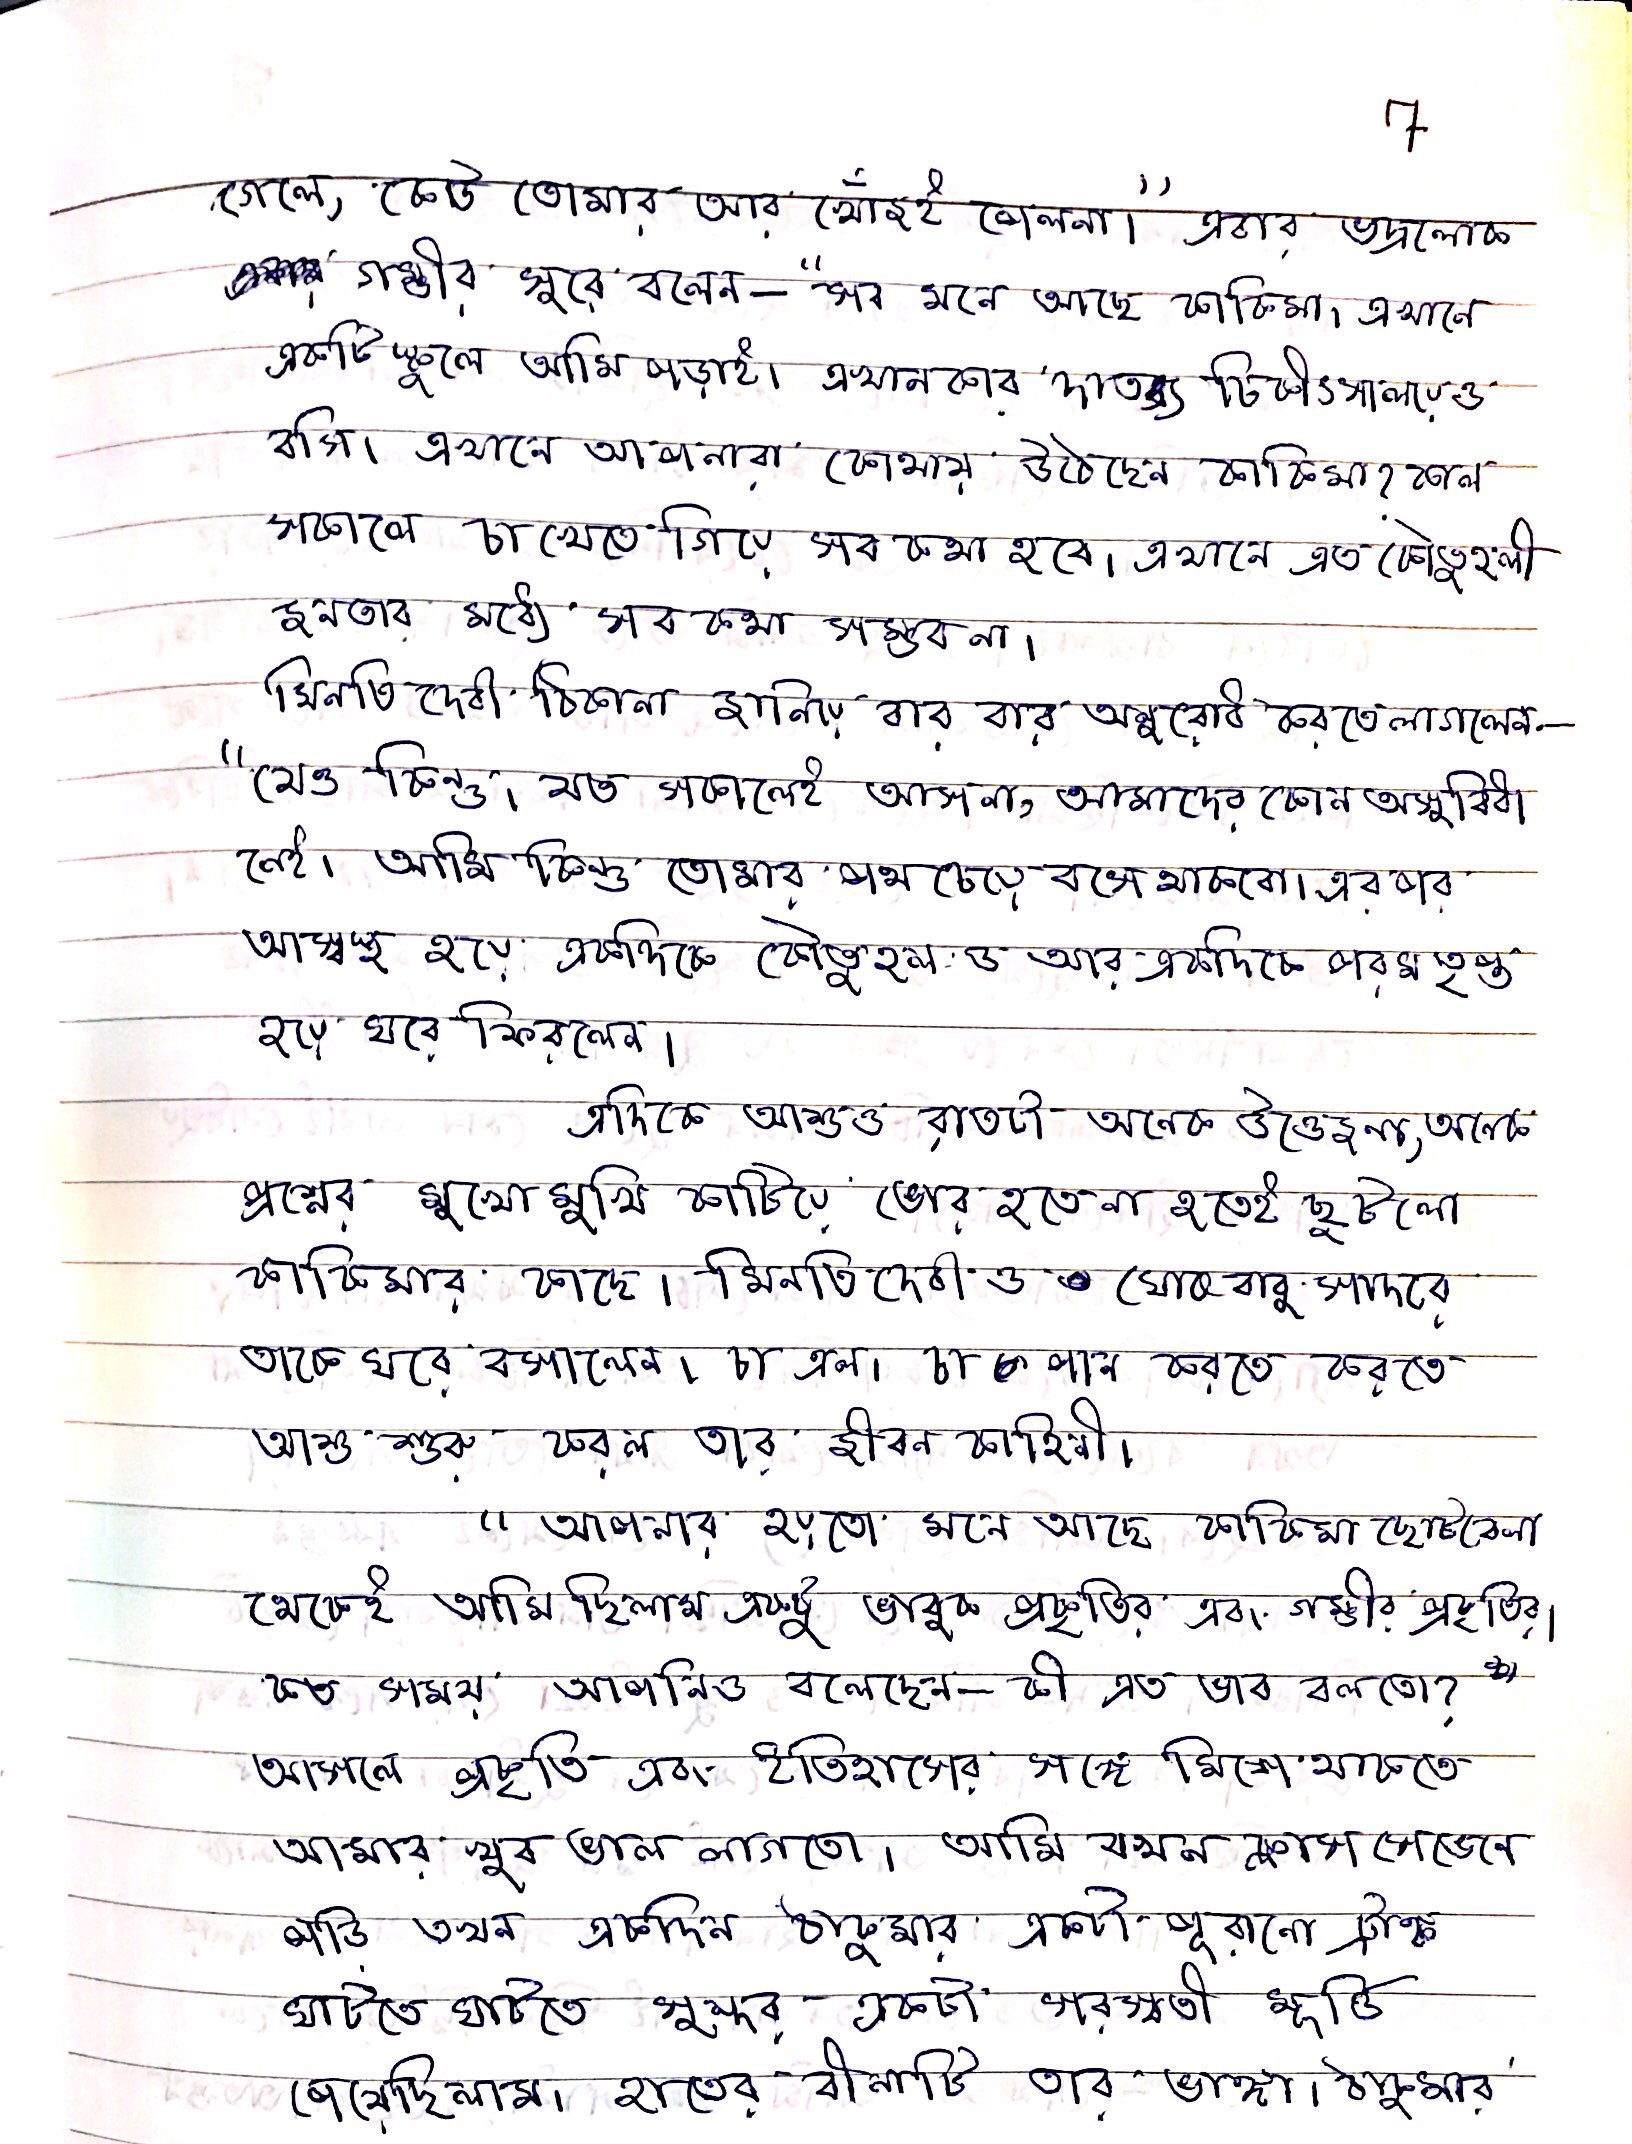 7
গেলে, কেউ তোমার আর খোঁজই পেলনা।" এবার ভদ্রলোক
গম্ভীর সুরে বলেন — "সব মনে আছে কাকিমা। এখানে
একটি স্কুলে আমি পড়াই। এখানকার দাতব্য চিকীৎসালয়েও
বসি। এখানে আপনারা কোথায় উঠেছেন কাকিমা? কাল
সকালে চা খেতে গিয়ে সব কথা হবে। এখানে এত কৌতুহলী
জনতার মধ্যে সব কথা সম্ভব না।
মিনতি দেবী ঠিকানা জানিয়ে বার বার অনুরোধ করতে লাগলেন —
"যেও কিন্তু। যত সকালেই আসনা, আমাদের কোন অসুবিধা
নেই। আমি কিন্তু তোমার পথ চেয়ে বসে থাকবো। এরপর
আস্বস্থ হয়ে একদিকে কৌতুহল ও আর একদিকে পরম তৃপ্ত
হয়ে ঘরে ফিরলেন।
এদিকে আশুও রাতটা অনেক উত্তেজনা, অনেক
প্রশ্নের মুখোমুখি কাটিয়ে ভোর হতে না হতেই ছুটলো
কাকিমার কাছে। মিনতি দেবী ও ঘোষবাবু সাদরে
তাকে ঘরে বসালেন। চা এল। চা পান করতে করতে
আশু শুরু করল তার জীবন কাহিনী।
" আপনার হয়তো মনে আছে কাকিমা ছোটবেলা
থেকেই আমি ছিলাম একটু ভাবুক প্রকৃতির এবং গম্ভীর প্রকৃতির।
কত সময় আপনিও বলেছেন — কী এত ভাব বলতো?
আসলে প্রকৃতি এবং ইতিহাসের সঙ্গে মিশে থাকতে
আমার খুব ভাল লাগতো। আমি যখন ক্লাস সেভেনে
পড়ি তখন একদিন ঠাকুমার একটা পুরানো ট্রাঙ্ক
ঘাটতে ঘাটতে সুন্দর একটা সরস্বতী মূর্ত্তি
পেয়েছিলাম। হাতের বীনাটি তার ভাঙ্গা। ঠাকুমার